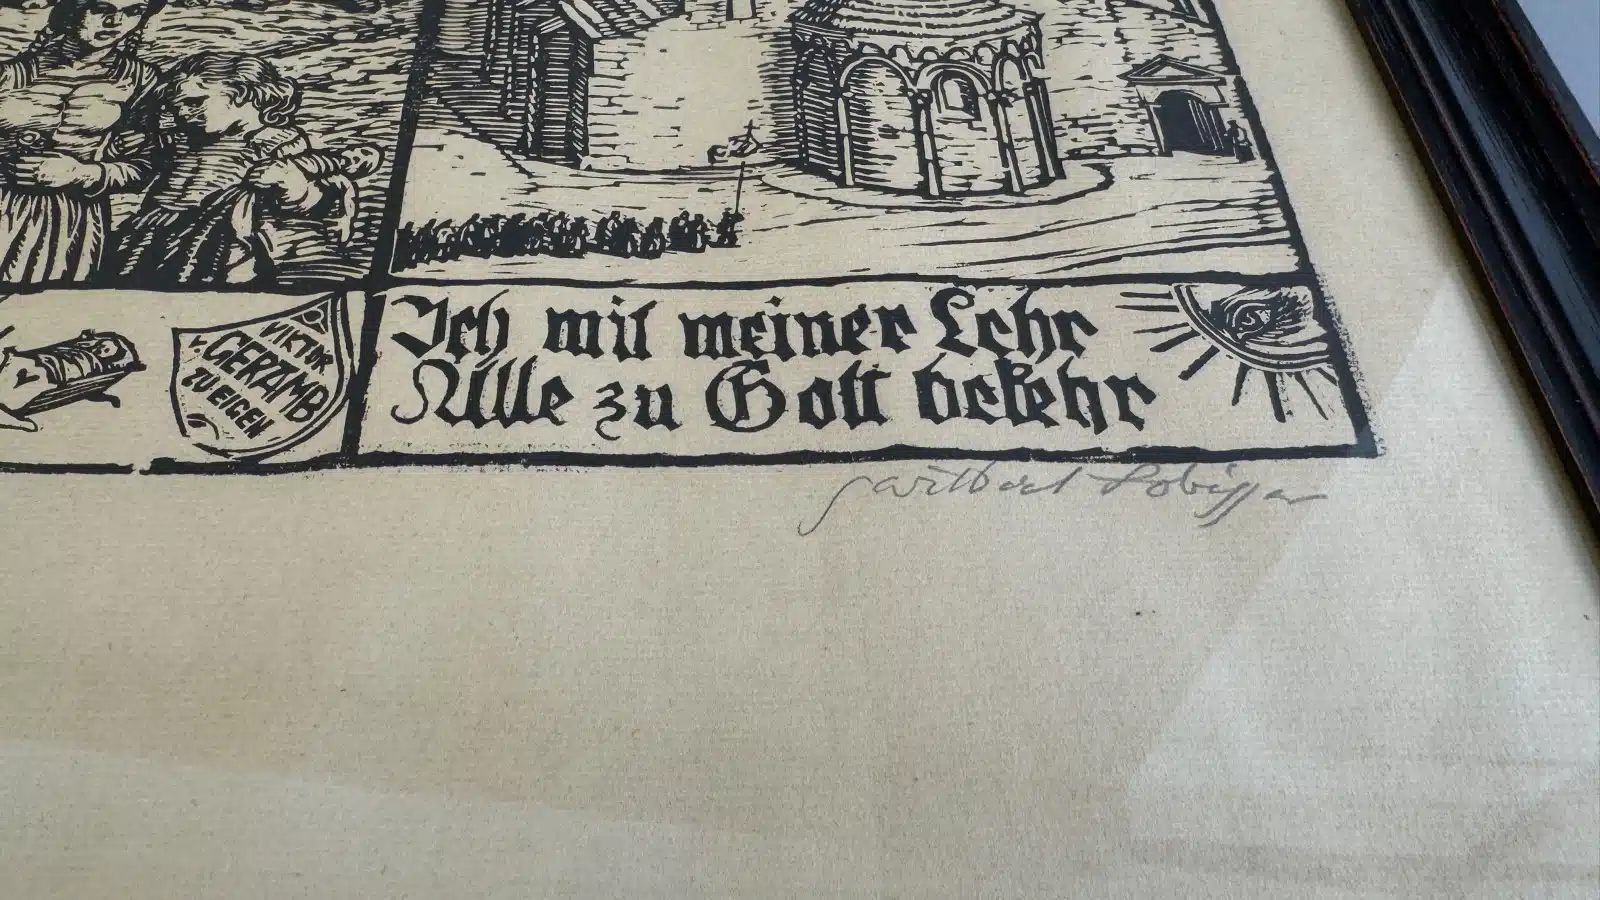 VIKTOR
v. GERAMB
ZU EIGEN
Ich mit meiner Lehr
Alle zu Gott bekehr
Switbert Lobisser